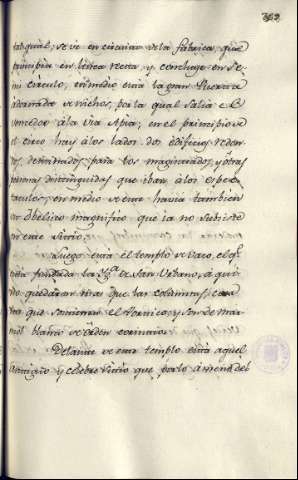 369
tatqual; se ve en circuitu de la fabrica, que
principia en linea recta, y concluye en Se-
mi Circulo, en medio esta la gran Puerta
adornada de nichos, por la qual salia el
vencedor à la Via Apia; en el principio de
el circo hay à los lados dos edificios redon-
dos, destinados para los magistrados, y otras
personas distinguidas que iban à los espec-
taculos; en medio de este havia tambien
un obelisco magnifico que ia no subsiste
en este sitio.
Luego està el templo de Baco, el qͤ
està fundada la Yg.ª de San Urbano, à qui
no quedaron mas que las columnas,
que sostienen el Pornico, y son de Mar-
mol blanco de orden corintio.
Delante de este templo està aquel
antiguo y celebre Sitio que por lo ameno del